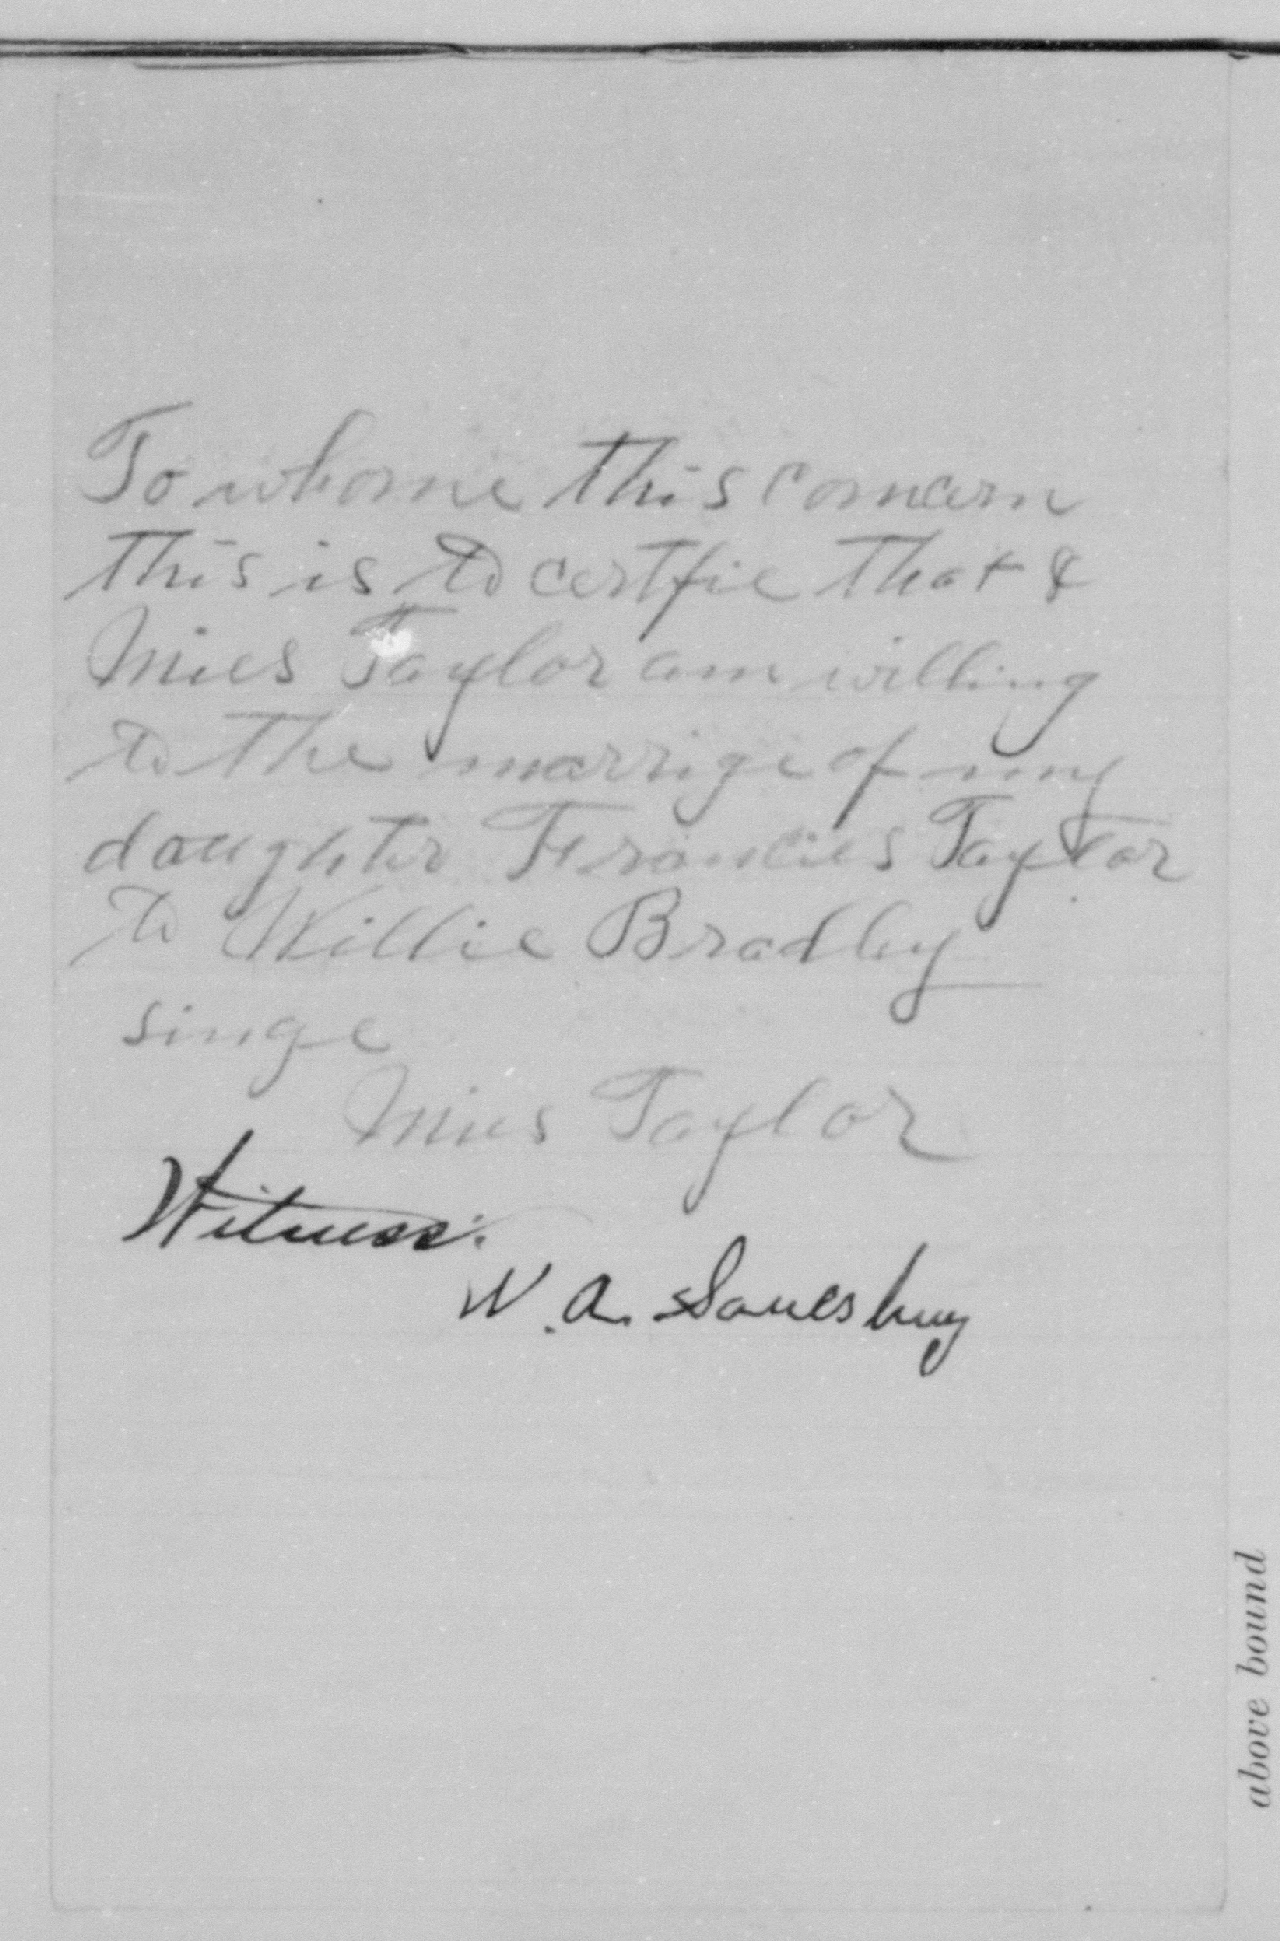 To whome this concern
this is to certfie that I
Mies Taylor am willing
to the marrige of my
daughter Francies Taylor
to Willie Bradley
singe
Mies Taylor
Witness:
W. A.
above bound